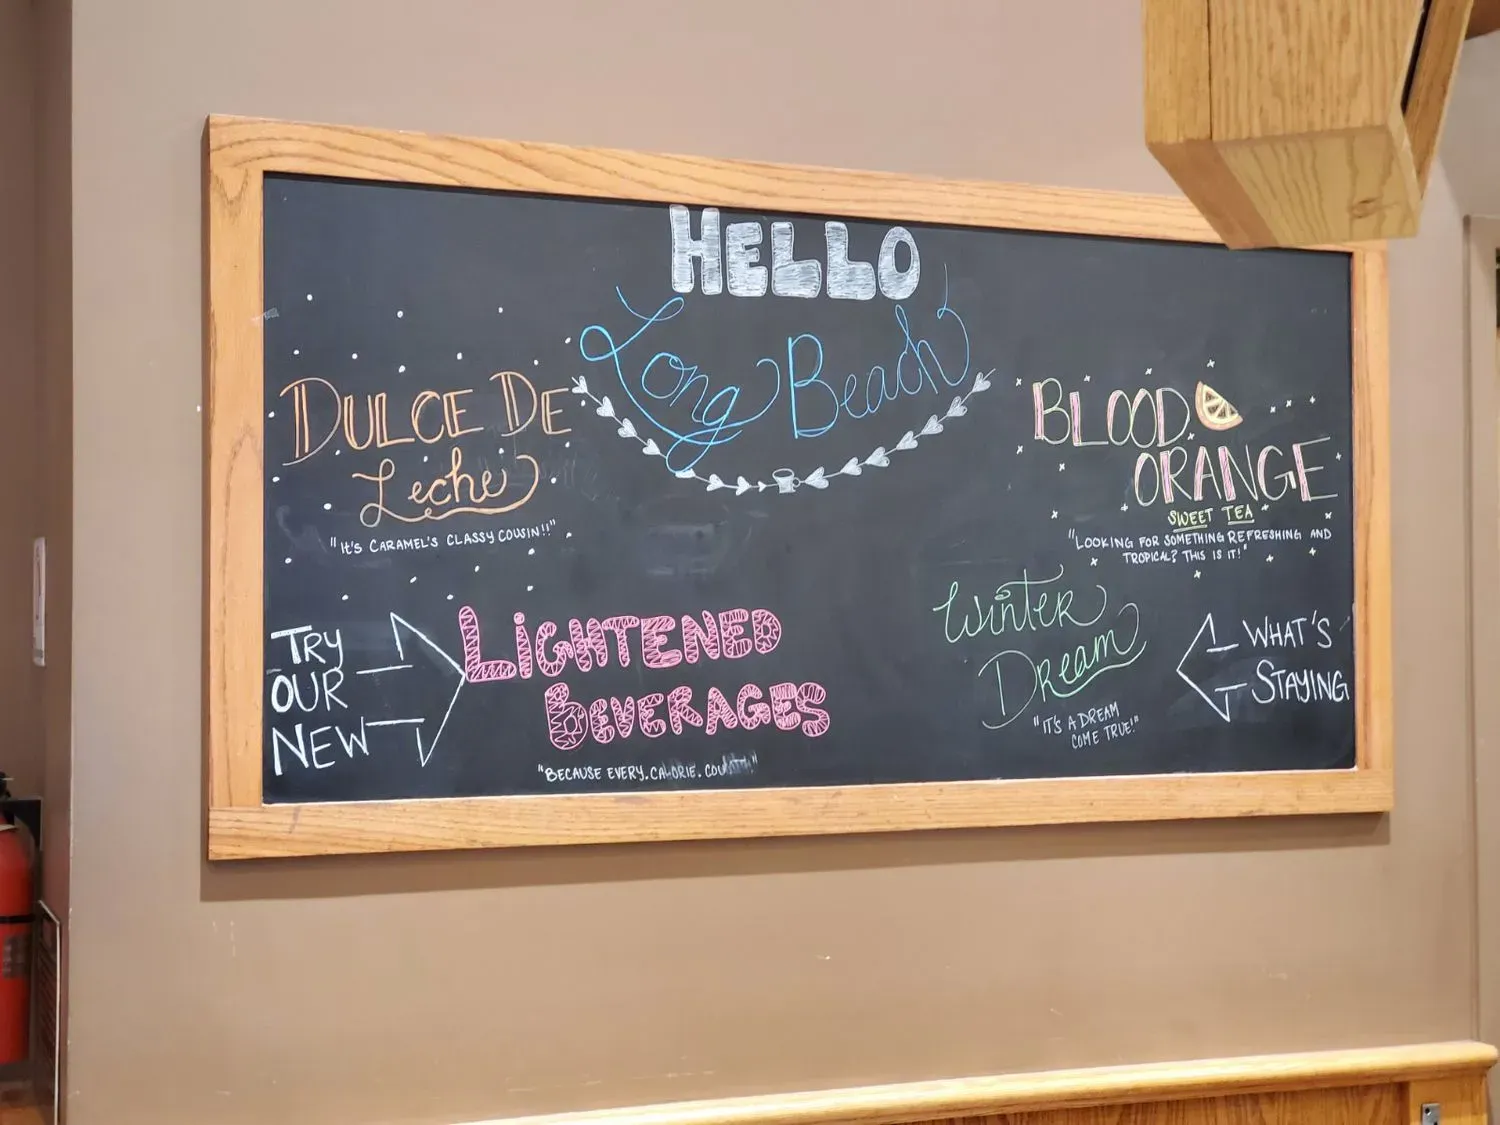 HELLO
Long Beach
DULCE DE
Leche
"IT'S CARAMEL'S CLASSY COUSIN!!"
BLOOD
ORANGE
SWEET TEA
"LOOKING FOR SOMETHING REFRESHING AND
TROPICAL? THIS IS IT!"
TRY
OUR
NEW
LIGHTENED
BEVERAGES
"BECAUSE EVERY.CALORIE.COUNTS!"
WINTER
DREAM
"IT'S A DREAM
COME TRUE!"
WHAT'S
STAYING